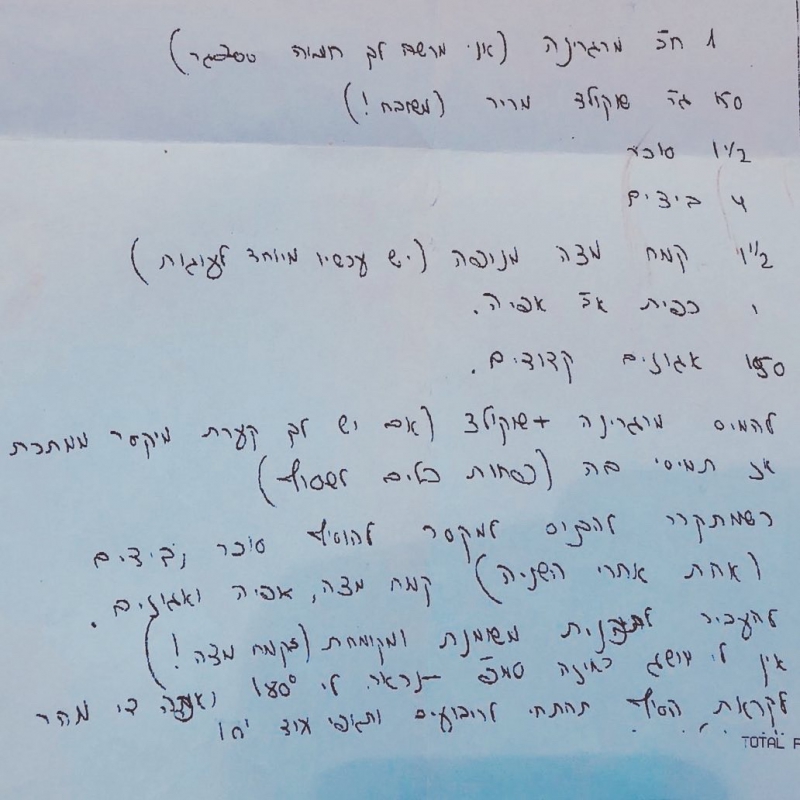 1 חב' מרגרינה (אני מרשה לך חמאה
150 גר' שוקולד מריר (משובח!)
1 1/2 סוכר
4 ביצים
1 1/2 קמח מצה מנופה (יש עכשיו מיוחד לעוגות)
1 כפית א. אפיה.
150 אגוזים קצוצים.
להמיס מרגרינה + שוקולד (אם יש לך קערת מיקסר ממתכת
אז תמיסי בה (פחות כלים לשטוף)
כשמתקרר להכניס למקסר להוסיף סוכר וביצים
(אחת אחרי השניה) קמח מצה, אפיה ואגוזים.
להעביר לתבנית משומנת ומקומחת (בקמח מצה!)
אין לי מושג נראה לי 180° די מהר
לקראת הסוף תחתכי לריבועים ותאפי עוד
TOTAL P